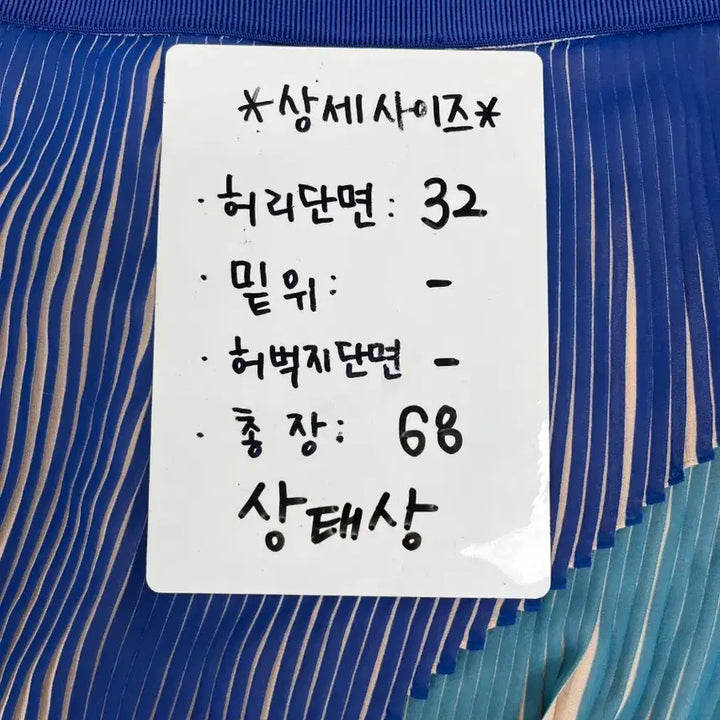 *상세사이즈*
· 허리단면: 32
· 밑위: -
· 허벅지단면 -
· 총장: 68
상태상